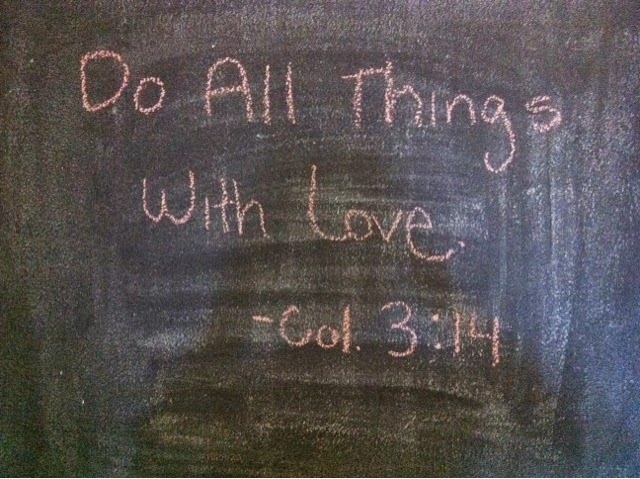 Do All Things
With Love.
-Col. 3:14